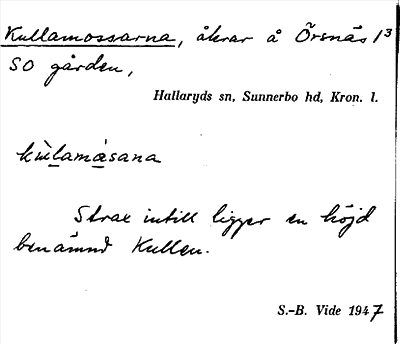 Kullamossarna, åkrar å Örsnäs 1³
SO gården,
Hallaryds sn, Sunnerbo hd, Kron. l.
kùlamåsana
Strax intill ligger en höjd
benämnd Kullen.
S.-B. Vide 1947